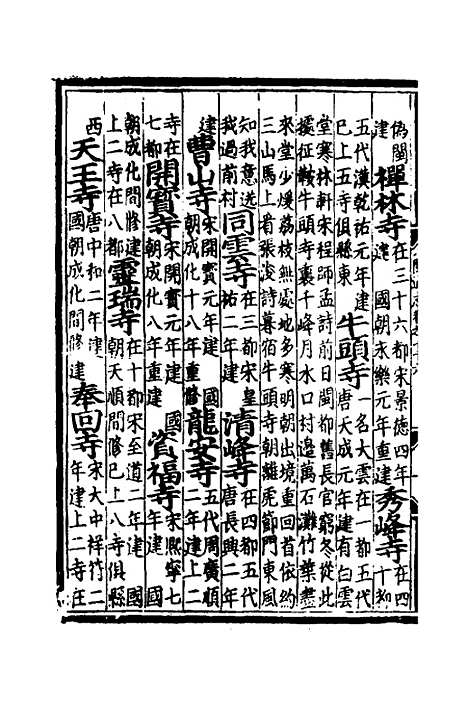 偽閩建禪林寺在三十六都宋景德四年建國朝永樂元年重建秀峰寺在四十都
五代漢乾祐元年建已上五寺俱縣東牛頭寺一名大雲在一都五代唐天成元年建有白雲
堂寒林軒宋程師孟詩前日閩都舊長官窮冬從此擁征鞍牛頭寺裏千峰月水口村邊萬石灘竹葉盡
來堂少煖荔枝無處地多寒明朝出境重回首依約三山馬上看張浚詩暮宿牛頭寺朝離虎節門東風
知我意送我過前村同雲寺在三都宋皇祐二年建清峰寺在四都五代唐長興二年
建曹山寺宋開寶元年建國朝成化十八年重修龍安寺五代周廣順二年建上二
寺在七都開寶寺宋開寶元年建國朝成化十八年重建資福寺宋熙寧七年建國
朝成化間修建上二寺在八都靈瑞寺在十都宋至道二年建國朝天順間修已上八寺俱縣
西天王寺唐中和二年建國朝成化間修建奉回寺宋大中祥符二年建上二寺在